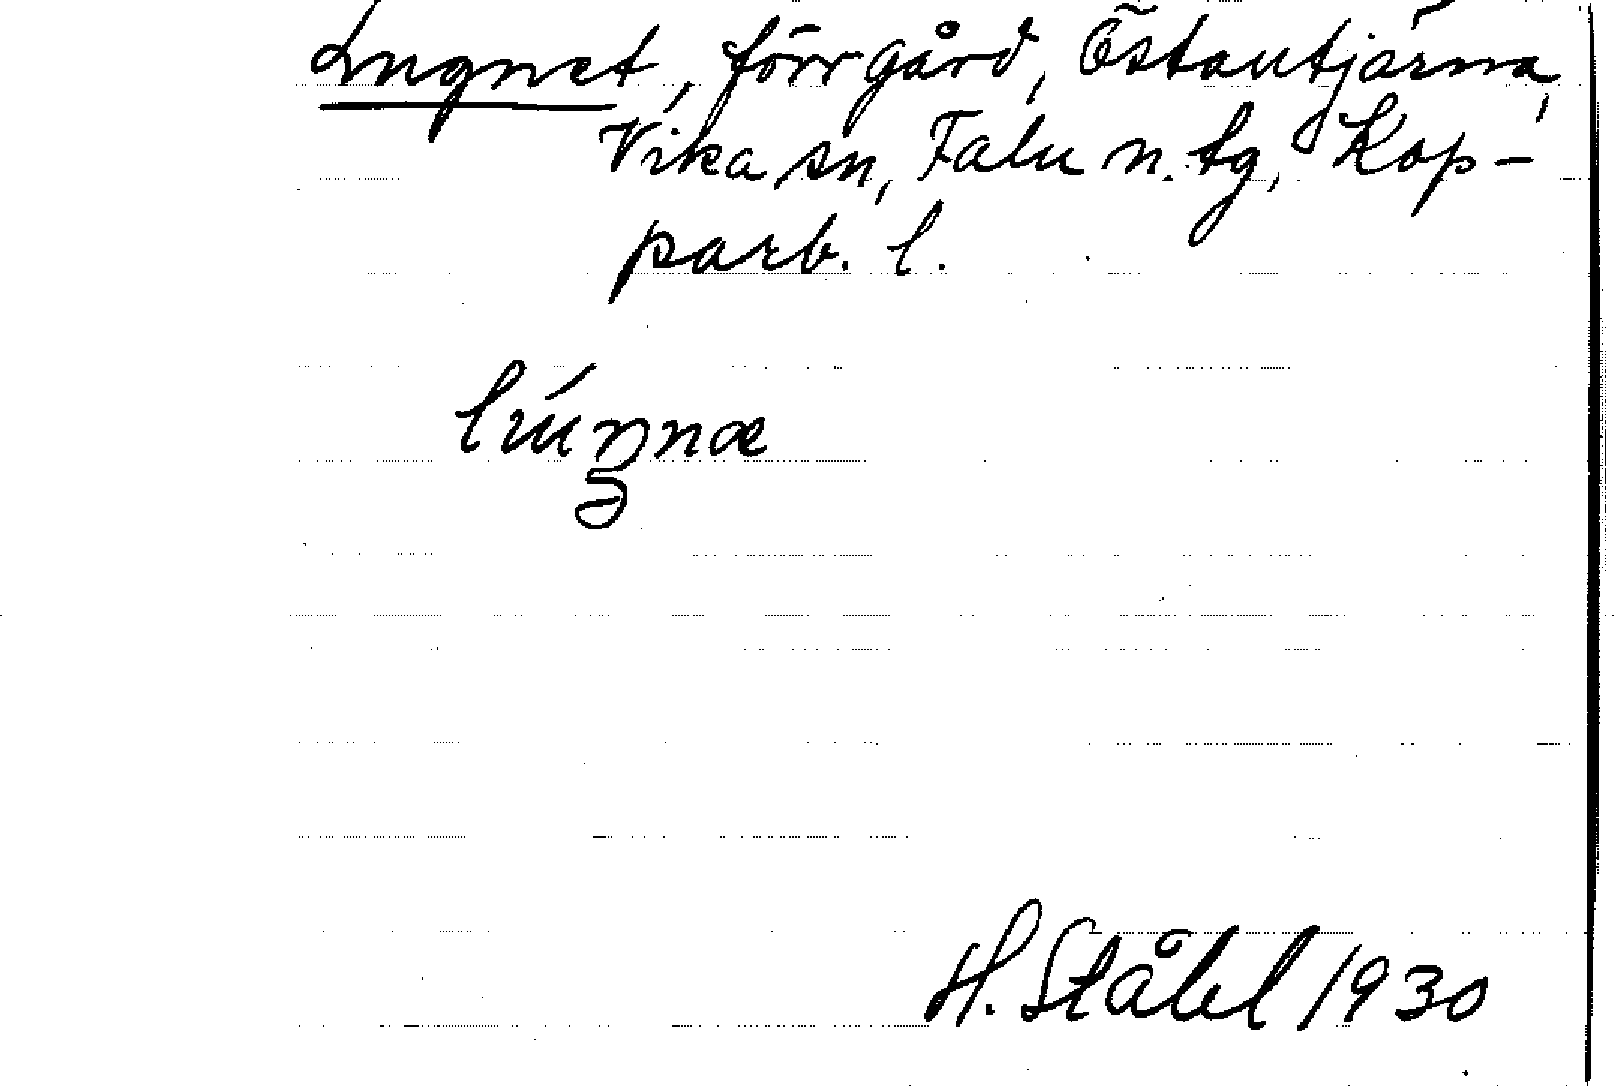 Lugnet, förr gård, Östantjärna,
Vika sn, Falu n. tg, Kop-
parb. l.
lúŋnæ
H. Ståhl 1930